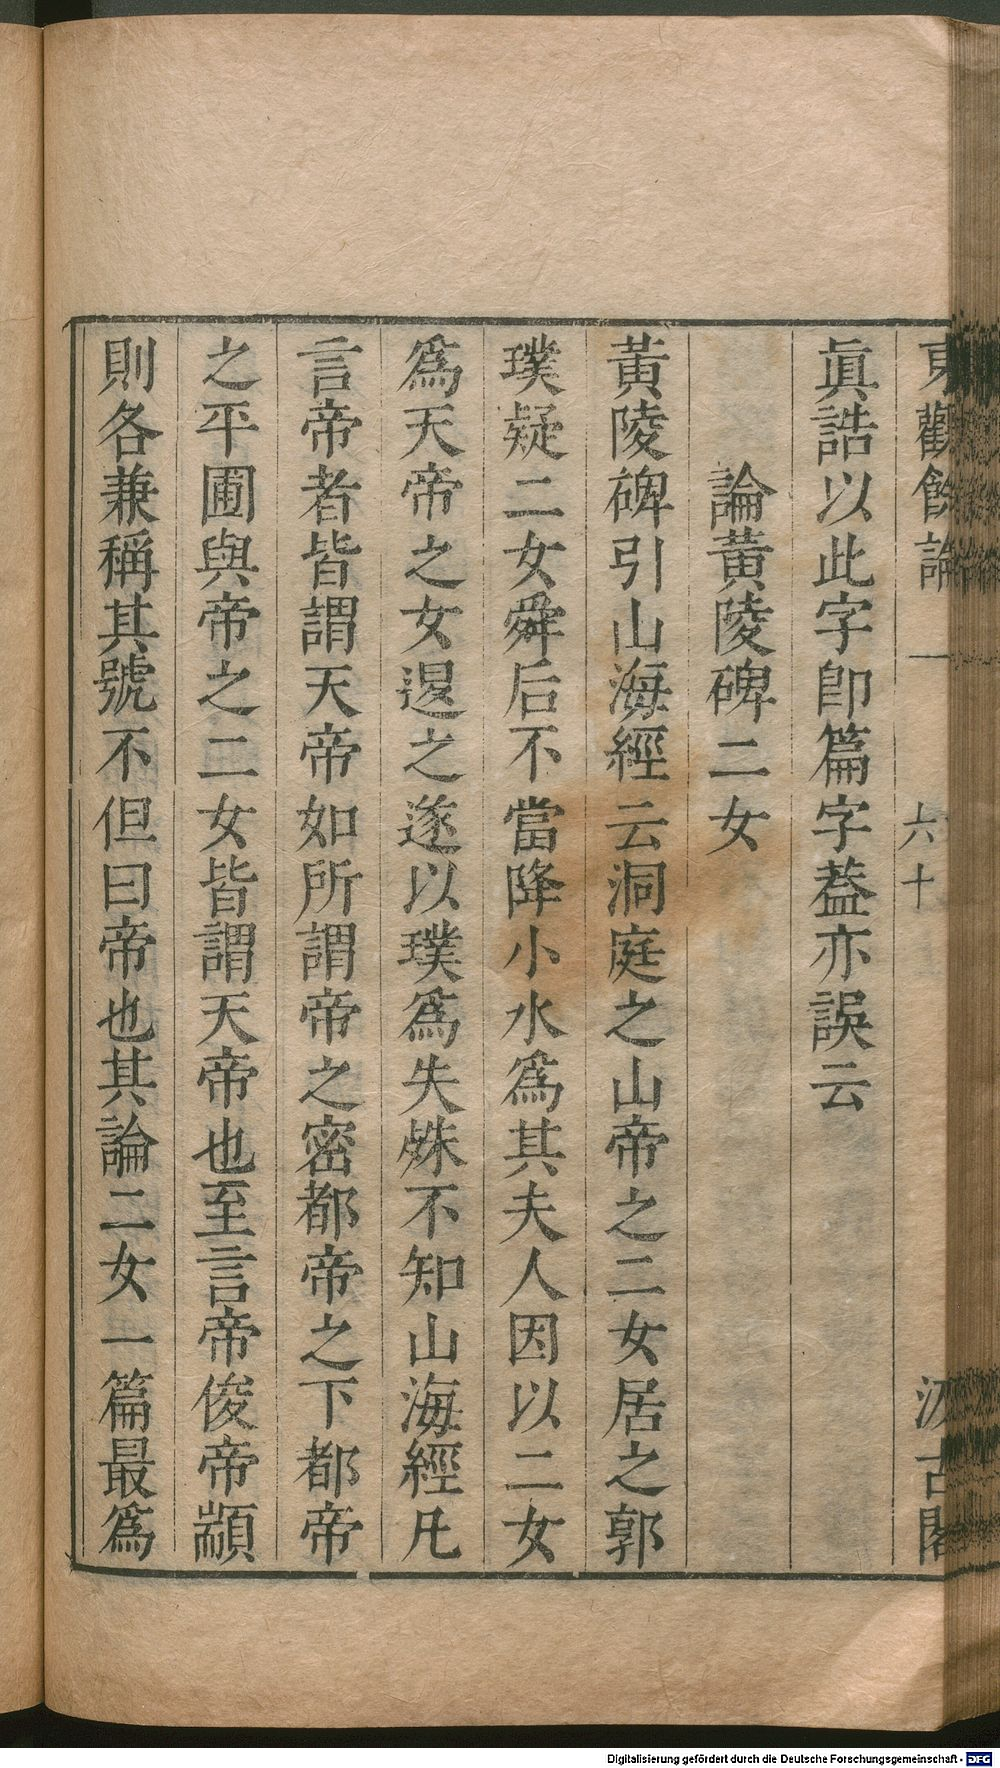 東觀餘論 一 六十 汲古閣
眞誥以此字卽篇字葢亦誤云
論黃陵碑二女
黃陵碑引山海經云洞庭之山帝之二女居之郭
璞疑二女舜后不當降小水爲其夫人因以二女
爲天帝之女退之遂以璞爲失姝不知山海經凡
言帝者皆謂天帝如所謂帝之密都帝之下都帝
之平圃與帝之二女皆謂天帝也至言帝俊帝顓
則各兼稱其號不但曰帝也其論二女一篇最爲
Digitalisierung gefördert durch die Deutsche Forschungsgemeinschaft - DFG